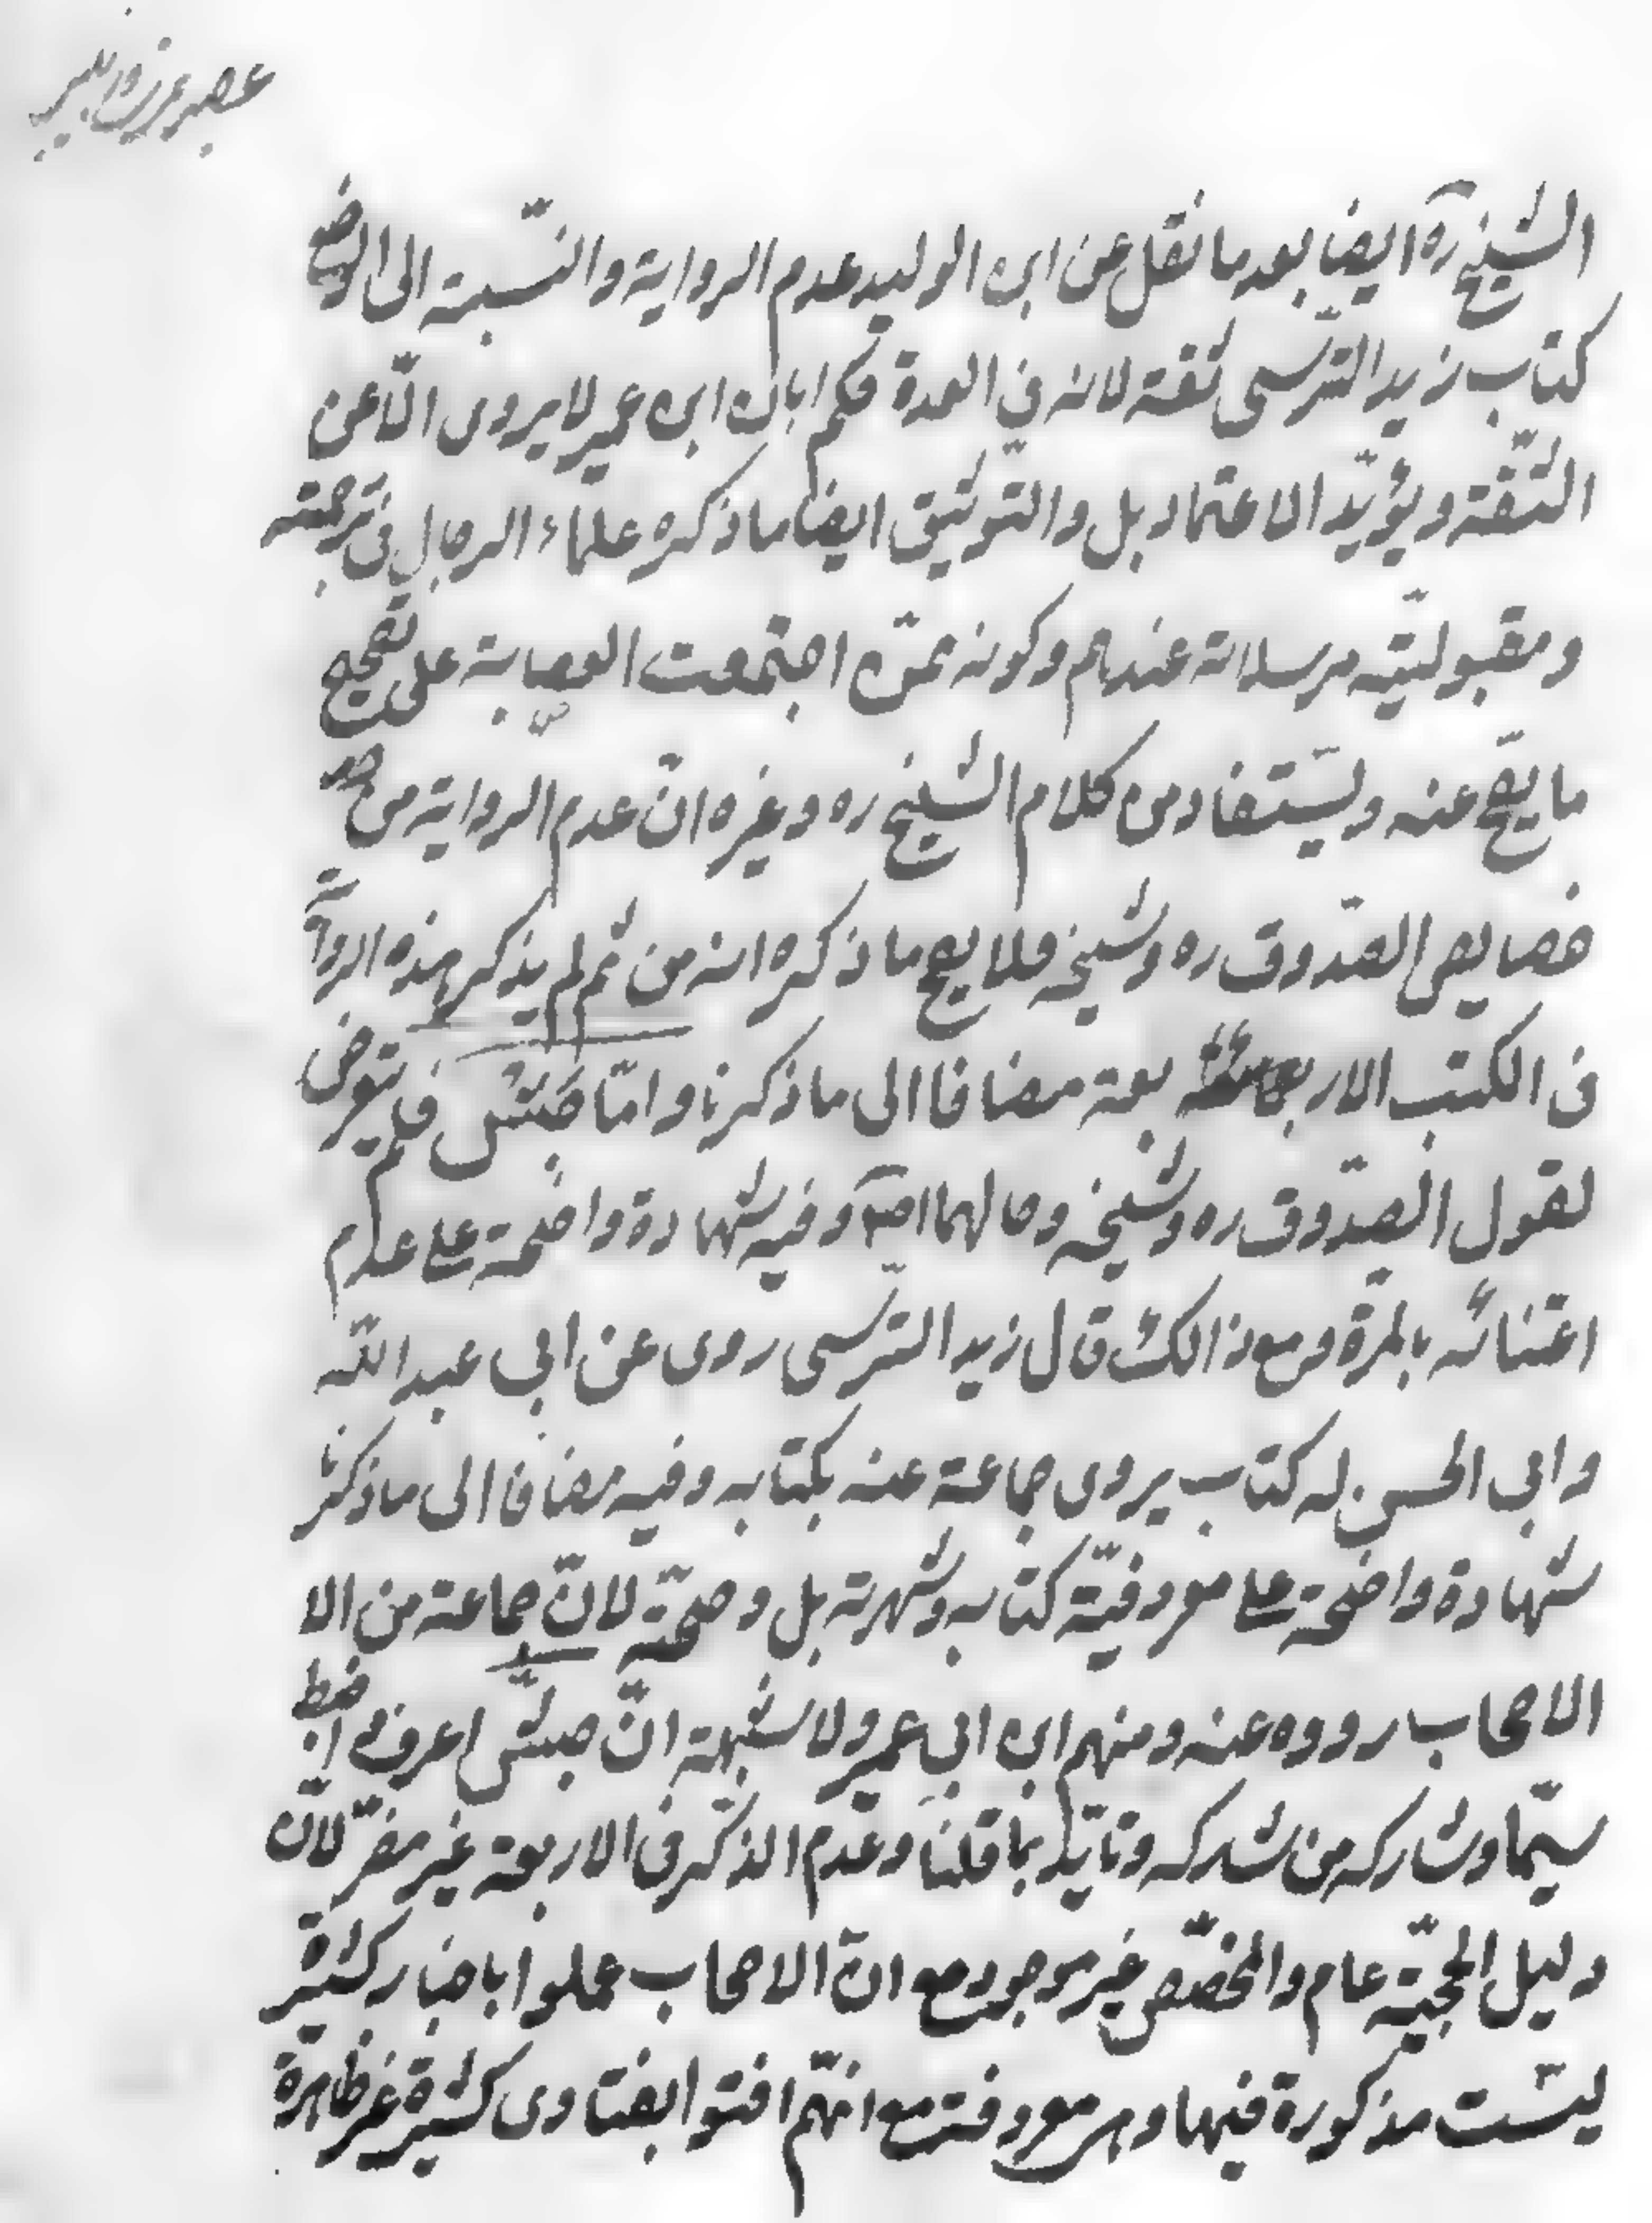 عصير عنب و زبيب
الشيخ ره ايضا بعد ما نقل عن ابن الوليد عدم الرواية والنّسبة الى الوضع
كتاب زيد النّرسى ثقة لانه فى العدة حكم بان ابن عمير لا يروى الّا عن
الثّقة ويؤيّد الاعتماد بل والتّوثيق ايضا ما ذكره علماء الرجال فى ترجمته
ومقبوليّته مرسلاته عندهم وكونه ممّن اجتمعت العصابة على تصحيح
ما يصحّ عنه ويستفاد من كلام الشيخ ره وغيره انّ عدم الرواية من
خصايص الصّدوق ره وشيخه فلا يصح ما ذكره انه من ثم لم يذكر هذه الرواية
فى الكتب الاربعة مضافا الى ما ذكرنا وامّا جش فلم يتعرض
لقول الصّدوق ره وشيخه وحالهما اصلا وفيه شهادة واضحة على عدم
اعتنائه بالمرّة ومع ذالك قال زيد النّرسى روى عن ابي عبد اللّه
وابي الحسن له كتاب يروى جماعة عنه بكتابه وفيه مضافا الى ما ذكرنا
شهادة واضحة على معروفيّة كتابه وشهرته بل وصحّته لانّ جماعة من الا
الاصحاب رووه عنه ومنهم ابن ابي عمير ولا شبهة انّ جش اعرف اضبط
سيّما وشاركه من شركه وتايّد بما قلنا وعدم الذّكر فى الاربعة غير مضرّ لانّ
دليل الحجيّة عام والمخصّص غير موجود مع انّ الاصحاب عملوا باخبار كثيرة
ليست مذكورة فيها وهى معروفة مع انّهم افتوا بفتاوى كثيرة غير ظاهرة